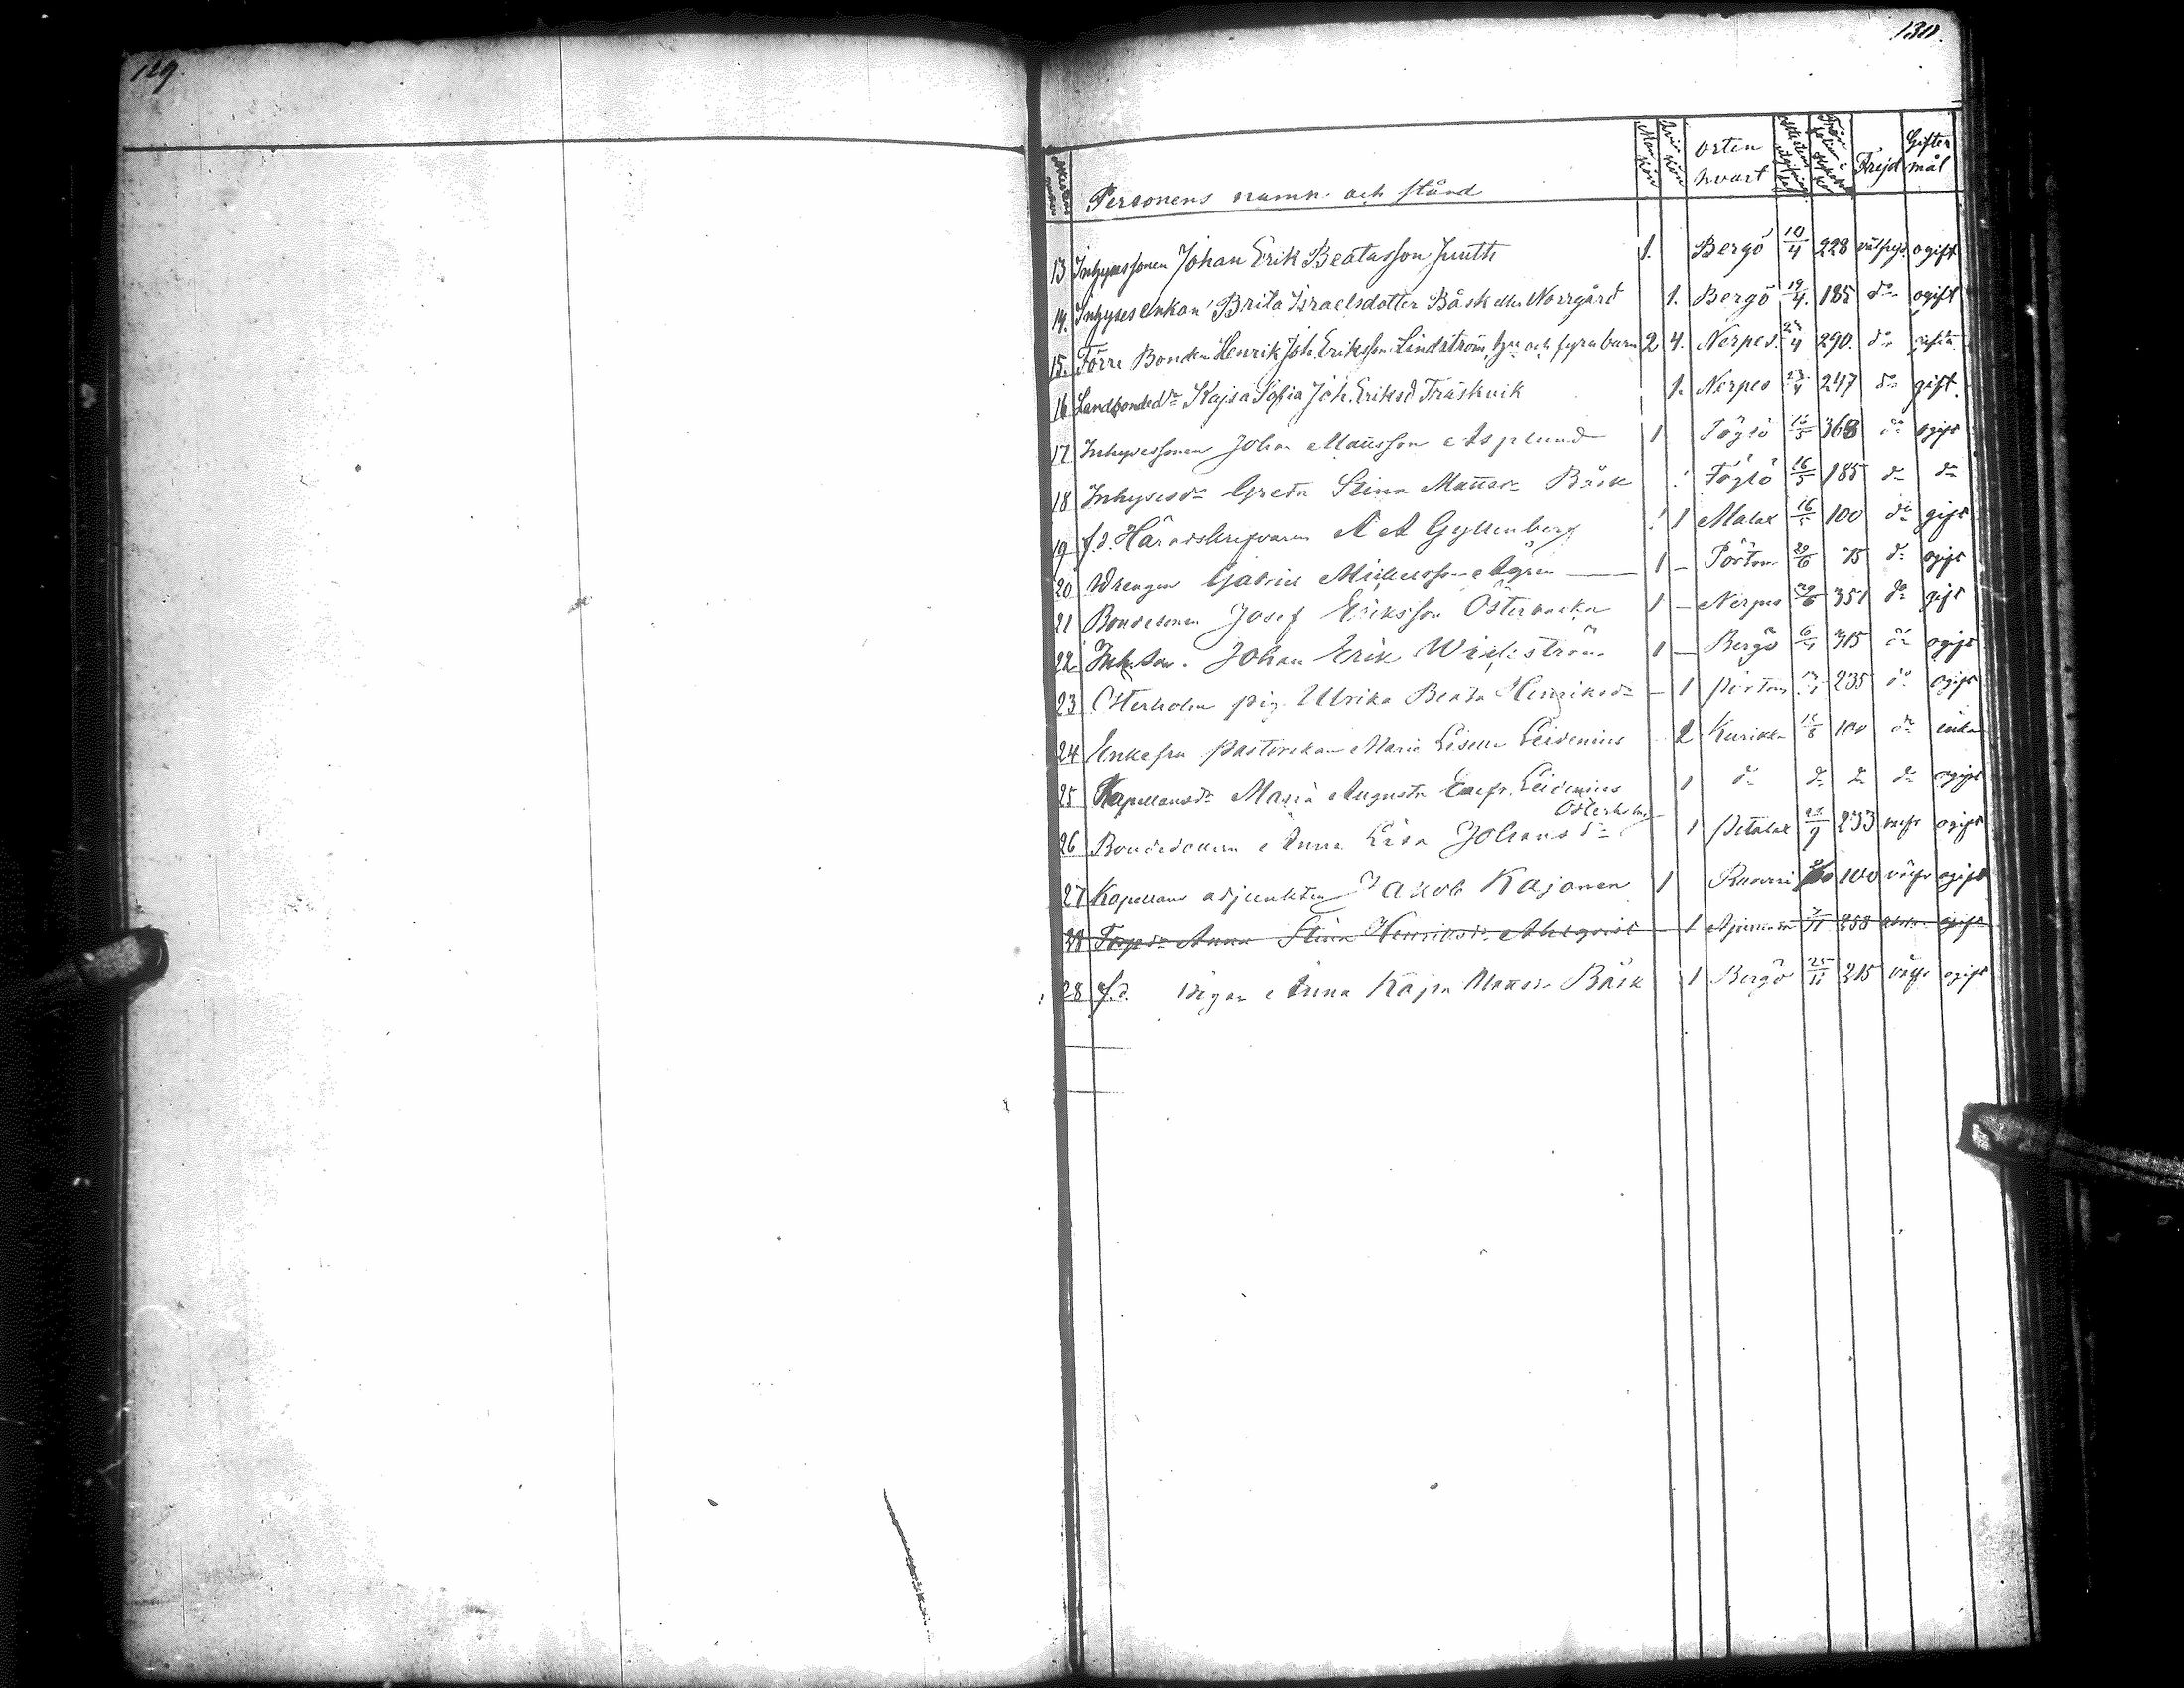 129.
130.
Personens namn och stånd Mankön Qvinkön orten hvart Frejd Giftermål
13 Inhysessonen Johan Erik Beatasson Juuth 1. Bergö 10/4 228 välfrejd. ogift
14. Inhysesenkan Brita Israelsdotter Båsk eller Norrgård 1. Bergö 19/4. 185 do ogift
15. Förre Bonden Henrik Joh. Eriksson Lindström, hu och fyra barn 2 4. Nerpes. 290. do gifta
16 Landbonded:r Kajsa Sofia Joh. Eriksd Träskvik 1. Nerpes 247 do gift.
17 Inhysessonen Johan Mattsson Asplund 1 Föglö 368 do ogift
18 Inhysesdr Greta Stina Mattsdr Båsk 1 Föglö 16/5 185 do do
19 f.d. Häradskrifvaren A A Gyllenberg 1 1 Malax 16/5 100 do gift
20 Drengen Gabriel Michelsson Ågren — 1 — Pörtom 29/6 75 do ogift
21 Bondesonen Josef Eriksson Österbacka 1 — Nerpes 29/6 351 do gift
22 Inh. son. Johan Erik Widström 1 — Bergö 315 do ogift
23 Österholm pig. Ulrika Beata Henriksdr — 1 Pörtom 235 do ogift
24 Enkefru Pastorskan Maria Lisette Leidenius 2 Kurikka 100 do enka
25 Kapellansdr Maria Augusta Leidenius 1 do do do do ogift
Österholm
26 Bondedottern Anna Lisa Johansdr 1 Petalax 233 välfr ogift
27 Kapellans adjunkten Jakob Kajanen 1 100 välfr ogift
28 Torpdr Anna Stina Henriksdr Ahlqvist 1 258 ogift
28 f.d. Pigan Anna Kajsa Mattsdr Båsk 1 Bergö 25/11 215 välfr ogift